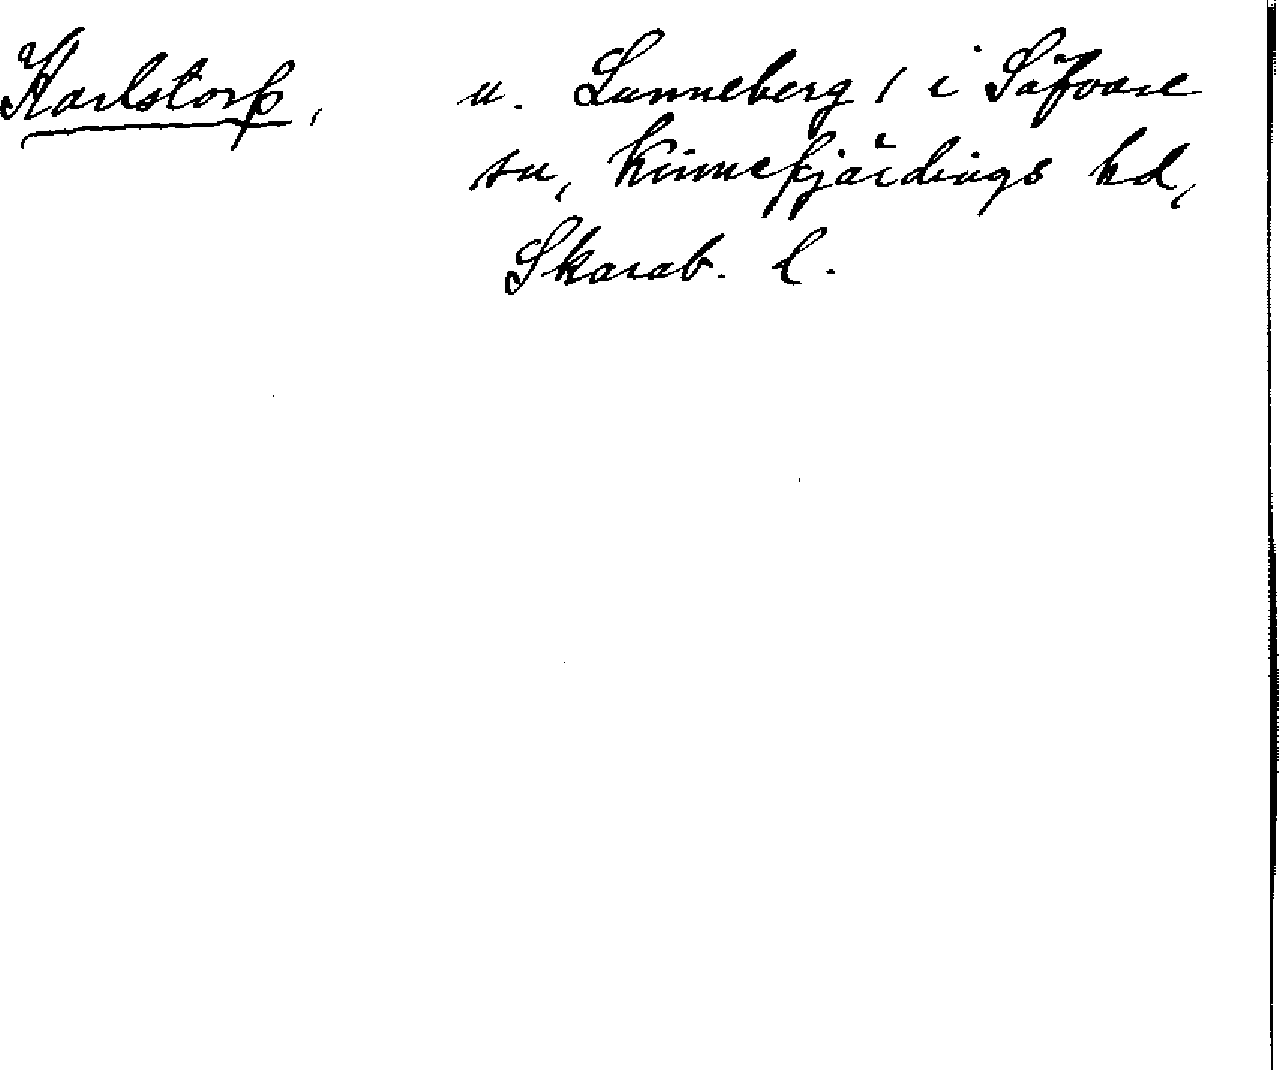 Karlstorp, u. Lunneberg, i Säfvare
sn, Kinnefjärdings hd,
Skarab. l.